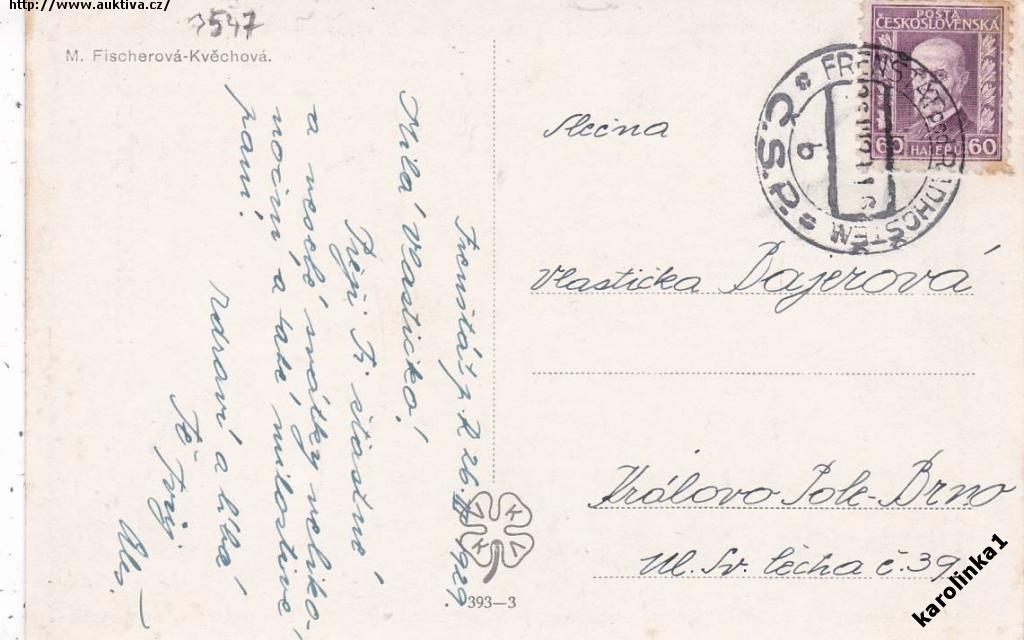 http://www.auktiva.cz/
3547
M. Fischerová-Kvěchová.
Frenštát p. R. 26. III 1929.
Milá Vlastičko!
Přeji Ti šťastné
a veselé svátky veliko-
noční a také milostivé
paní.
Zdraví a líbá
Tě Tvůj
393—3
POŠTA
ČESKOSLOVENSKÁ
60 HALÉŘŮ 60
FRENŠTÁT POD RADHOŠTĚM
Č.S.P.
9
Slečna
Vlastička Bajerová
Královo Pole-Brno
Ul. Sv. Čecha č. 39
karolinka1